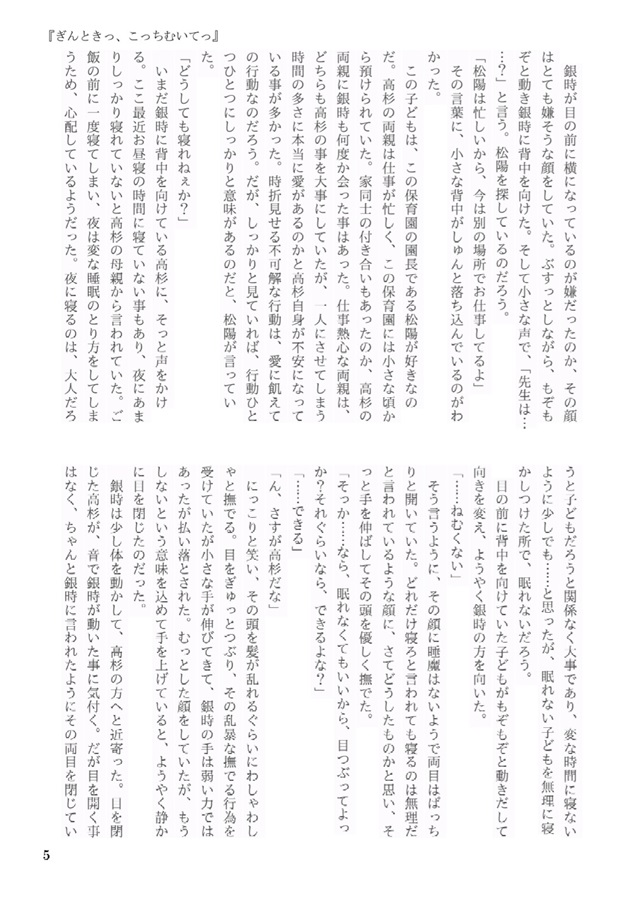 『ぎんときっ、こっちむいてっ』
　銀時が目の前に横になっているのが嫌だったのか、その顔
はとても嫌そうな顔をしていた。ぶすっとしながら、もぞも
ぞと動き銀時に背中を向けた。そして小さな声で、「先生は…
…?」と言う。松陽を探しているのだろう。
「松陽は忙しいから、今は別の場所でお仕事してるよ」
　その言葉に、小さな背中がしゅんと落ち込んでいるのがわ
かった。
　この子どもは、この保育園の園長である松陽が好きなの
だ。高杉の両親は仕事が忙しく、この保育園には小さな頃か
ら預けられていた。家同士の付き合いもあったのか、高杉の
両親に銀時も何度か会った事はあった。仕事熱心な両親は、
どちらも高杉の事を大事にしていたが、一人にさせてしまう
時間の多さに本当に愛があるのかと高杉自身が不安になって
いる事が多かった。時折見せる不可解な行動は、愛に飢えて
の行動なのだろう。だが、しっかりと見ていれば、行動ひと
つひとつにしっかりと意味があるのだと、松陽が言ってい
た。
「どうしても寝れねぇか?」
　いまだ銀時に背中を向けている高杉に、そっと声をかけ
る。ここ最近お昼寝の時間に寝ていない事もあり、夜にあま
りしっかり寝れていないと高杉の母親から言われていた。ご
飯の前に一度寝てしまい、夜は変な睡眠のとり方をしてしま
うため、心配しているようだった。夜に寝るのは、大人だろ
うと子どもだろうと関係なく大事であり、変な時間に寝ない
ように少しでも……と思ったが、眠れない子どもを無理に寝
かしつけた所で、眠れないだろう。
　目の前に背中を向けていた子どもがもぞもぞと動きだして
向きを変え、ようやく銀時の方を向いた。
「……ねむくない」
　そう言うように、その顔に睡魔はないようで両目はぱっち
りと開いていた。どれだけ寝ろと言われても寝るのは無理だ
と言われているような顔に、さてどうしたものかと思い、そ
っと手を伸ばしてその頭を優しく撫でた。
「そっか……なら、眠れなくてもいいから、目つぶってよっ
か?それぐらいなら、できるよな?」
「……できる」
「ん、さすが高杉だな」
　にっこりと笑い、その頭を髪が乱れるぐらいにわしゃわし
ゃと撫でる。目をぎゅっとつぶり、その乱暴な撫でる行為を
受けていたが小さな手が伸びてきて、銀時の手は弱い力では
あったが払い落とされた。むっとした顔をしていたが、もう
しないという意味を込めて手を上げていると、ようやく静か
に目を閉じたのだった。
　銀時は少し体を動かして、高杉の方へと近寄った。目を閉
じた高杉が、音で銀時が動いた事に気付く。だが目を開く事
はなく、ちゃんと銀時に言われたようにその両目を閉じてい
5